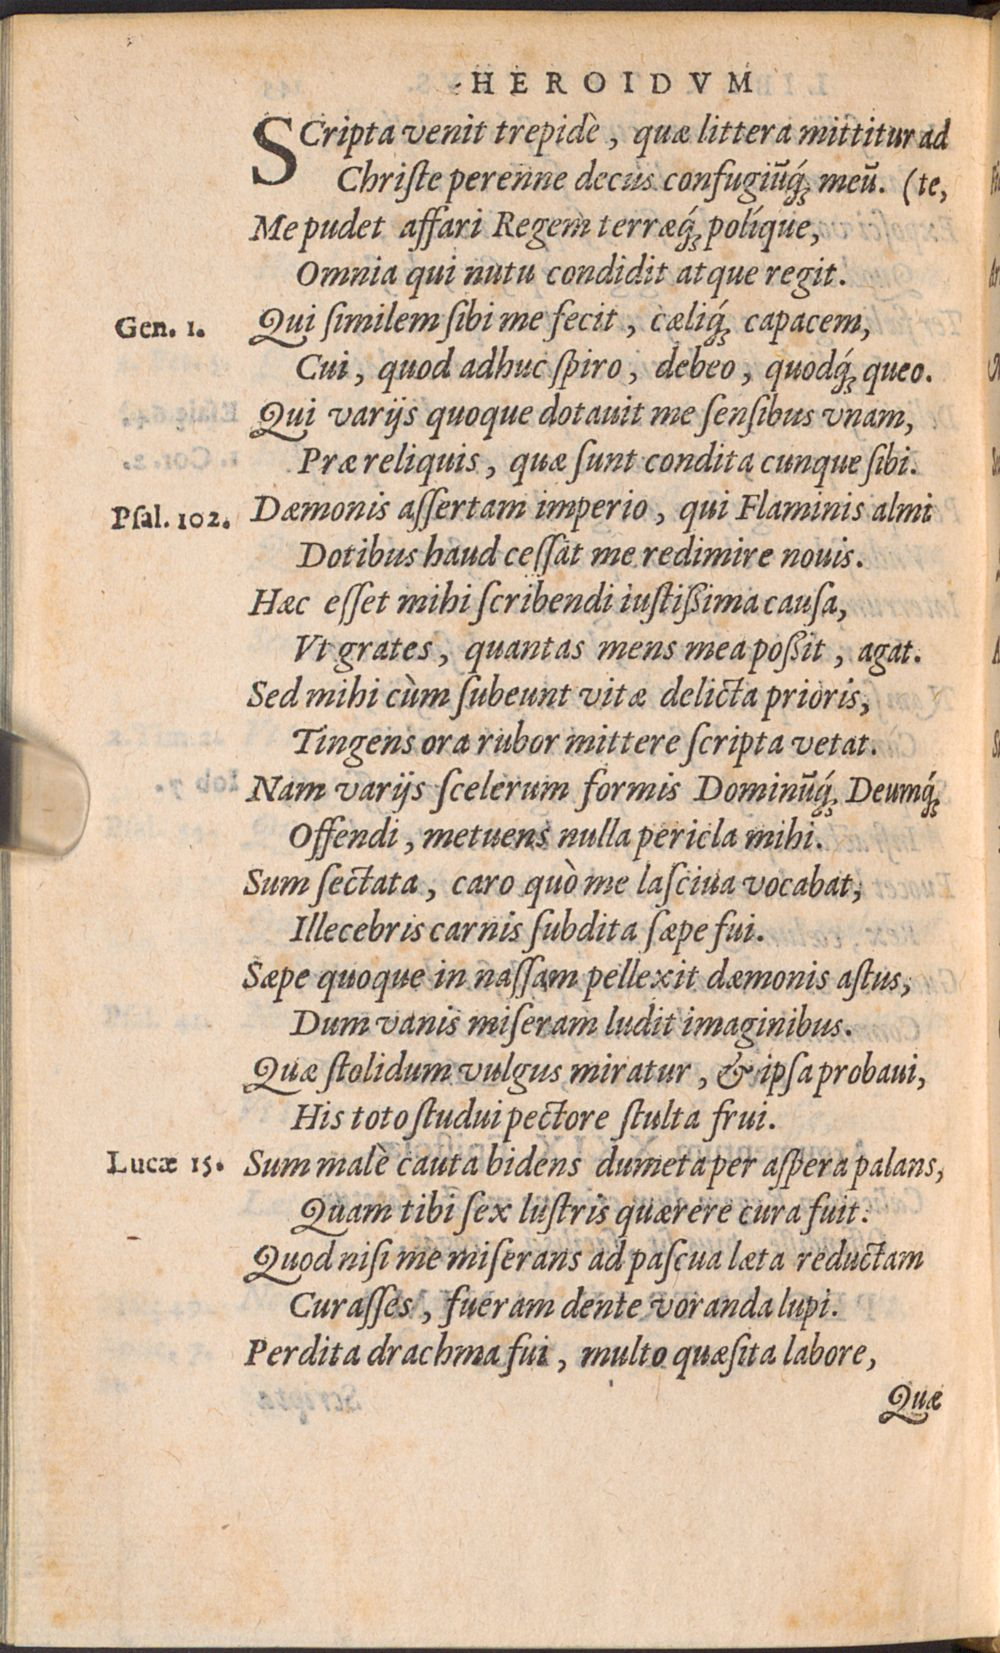 HEROIDVM
SCripta venit trepidè, quæ littera mittitur ad
Chriſte perenne decus confugiūq́; meū. (te,
Me pudet affari Regem terræq́; políque,
Omnia qui nutu condidit atque regit.
Gen. 1. Qui ſimilem ſibi me fecit, cæliq́; capacem,
Cui, quod adhuc ſpiro, debeo, quodq́; queo.
Qui varijs quoque dotauit me ſenſibus vnam,
Præ reliquis, quæ ſunt condita cunque ſibi.
Pſal. 102. Dæmonis aſſertam imperio, qui Flaminis almi
Dotibus haud ceſſat me redimire nouis.
Hæc eſſet mihi ſcribendi iuſtißima cauſa,
Vt grates, quantas mens mea poßit, agat.
Sed mihi cùm ſubeunt vitæ delicta prioris,
Tingens ora rubor mittere ſcripta vetat.
Nam varijs ſcelerum formis Dominūq́; Deumq́;
Offendi, metuens nulla pericla mihi.
Sum ſectata, caro quò me laſciua vocabat,
Illecebris carnis ſubdita ſæpe fui.
Sæpe quoque in naſſam pellexit dæmonis aſtus,
Dum vanis miſeram ludit imaginibus.
Quæ ſtolidum vulgus miratur, & ipſa probaui,
His toto ſtudui pectore ſtulta frui.
Lucæ 15. Sum malè cauta bidens dumeta per aſpera palans,
Quam tibi ſex luſtris quærere cura fuit.
Quod niſi me miſerans ad paſcua læta reductam
Curaſſes, fueram dente voranda lupi.
Perdita drachma fui, multo quæſita labore,
Quæ